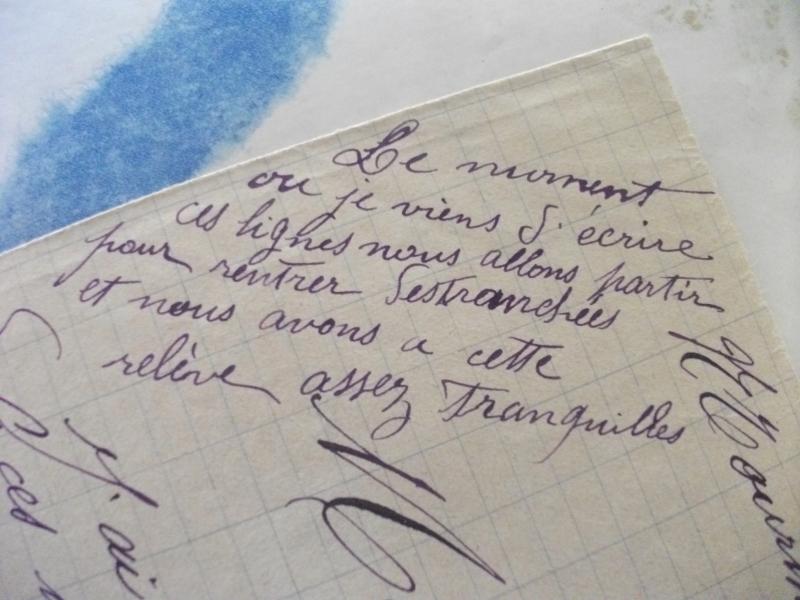 Le moment
ou je viens d'écrire
ces lignes nous allons partir
pour rentrer destranchées
et nous avons a cette
relève assez tranquilles
J'ai
ces